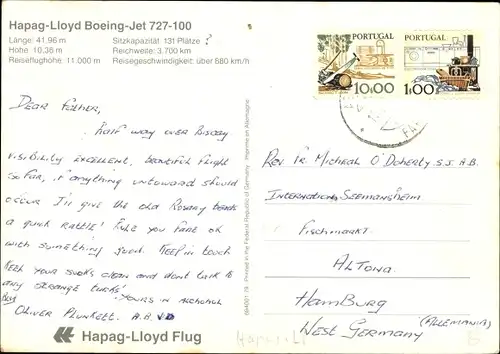 Hapag-Lloyd Boeing-Jet 727-100
Länge: 41.96 m Sitzkapazität: 131 Plätze ?
Höhe: 10,36 m Reichweite: 3.700 km
Reiseflughöhe: 11 000 m Reisegeschwindigkeit: über 880 km/h
PORTUGAL
10$00
PORTUGAL
1$00
Dear Father,
Half way over Biscay
visibility excellent, beautiful flight
so far, if anything untoward should
occur I'll give the old Rosary beads
a quick rattle! Hope you fare ok
with something good. Keep in touch
Keep your socks clean and dont talk to
any strange Turks!
Yours in alcohol
Oliver Plunkett. A.B.
Hapag-Lloyd Flug
Printed in the Federal Republic of Germany · Imprimé en Allemagne
Rev Fr Micheal O'Doherty S.S. A.B.
International Seemansheim
Fischmarkt.
Altona
Hamburg
West Germany (Allemania)